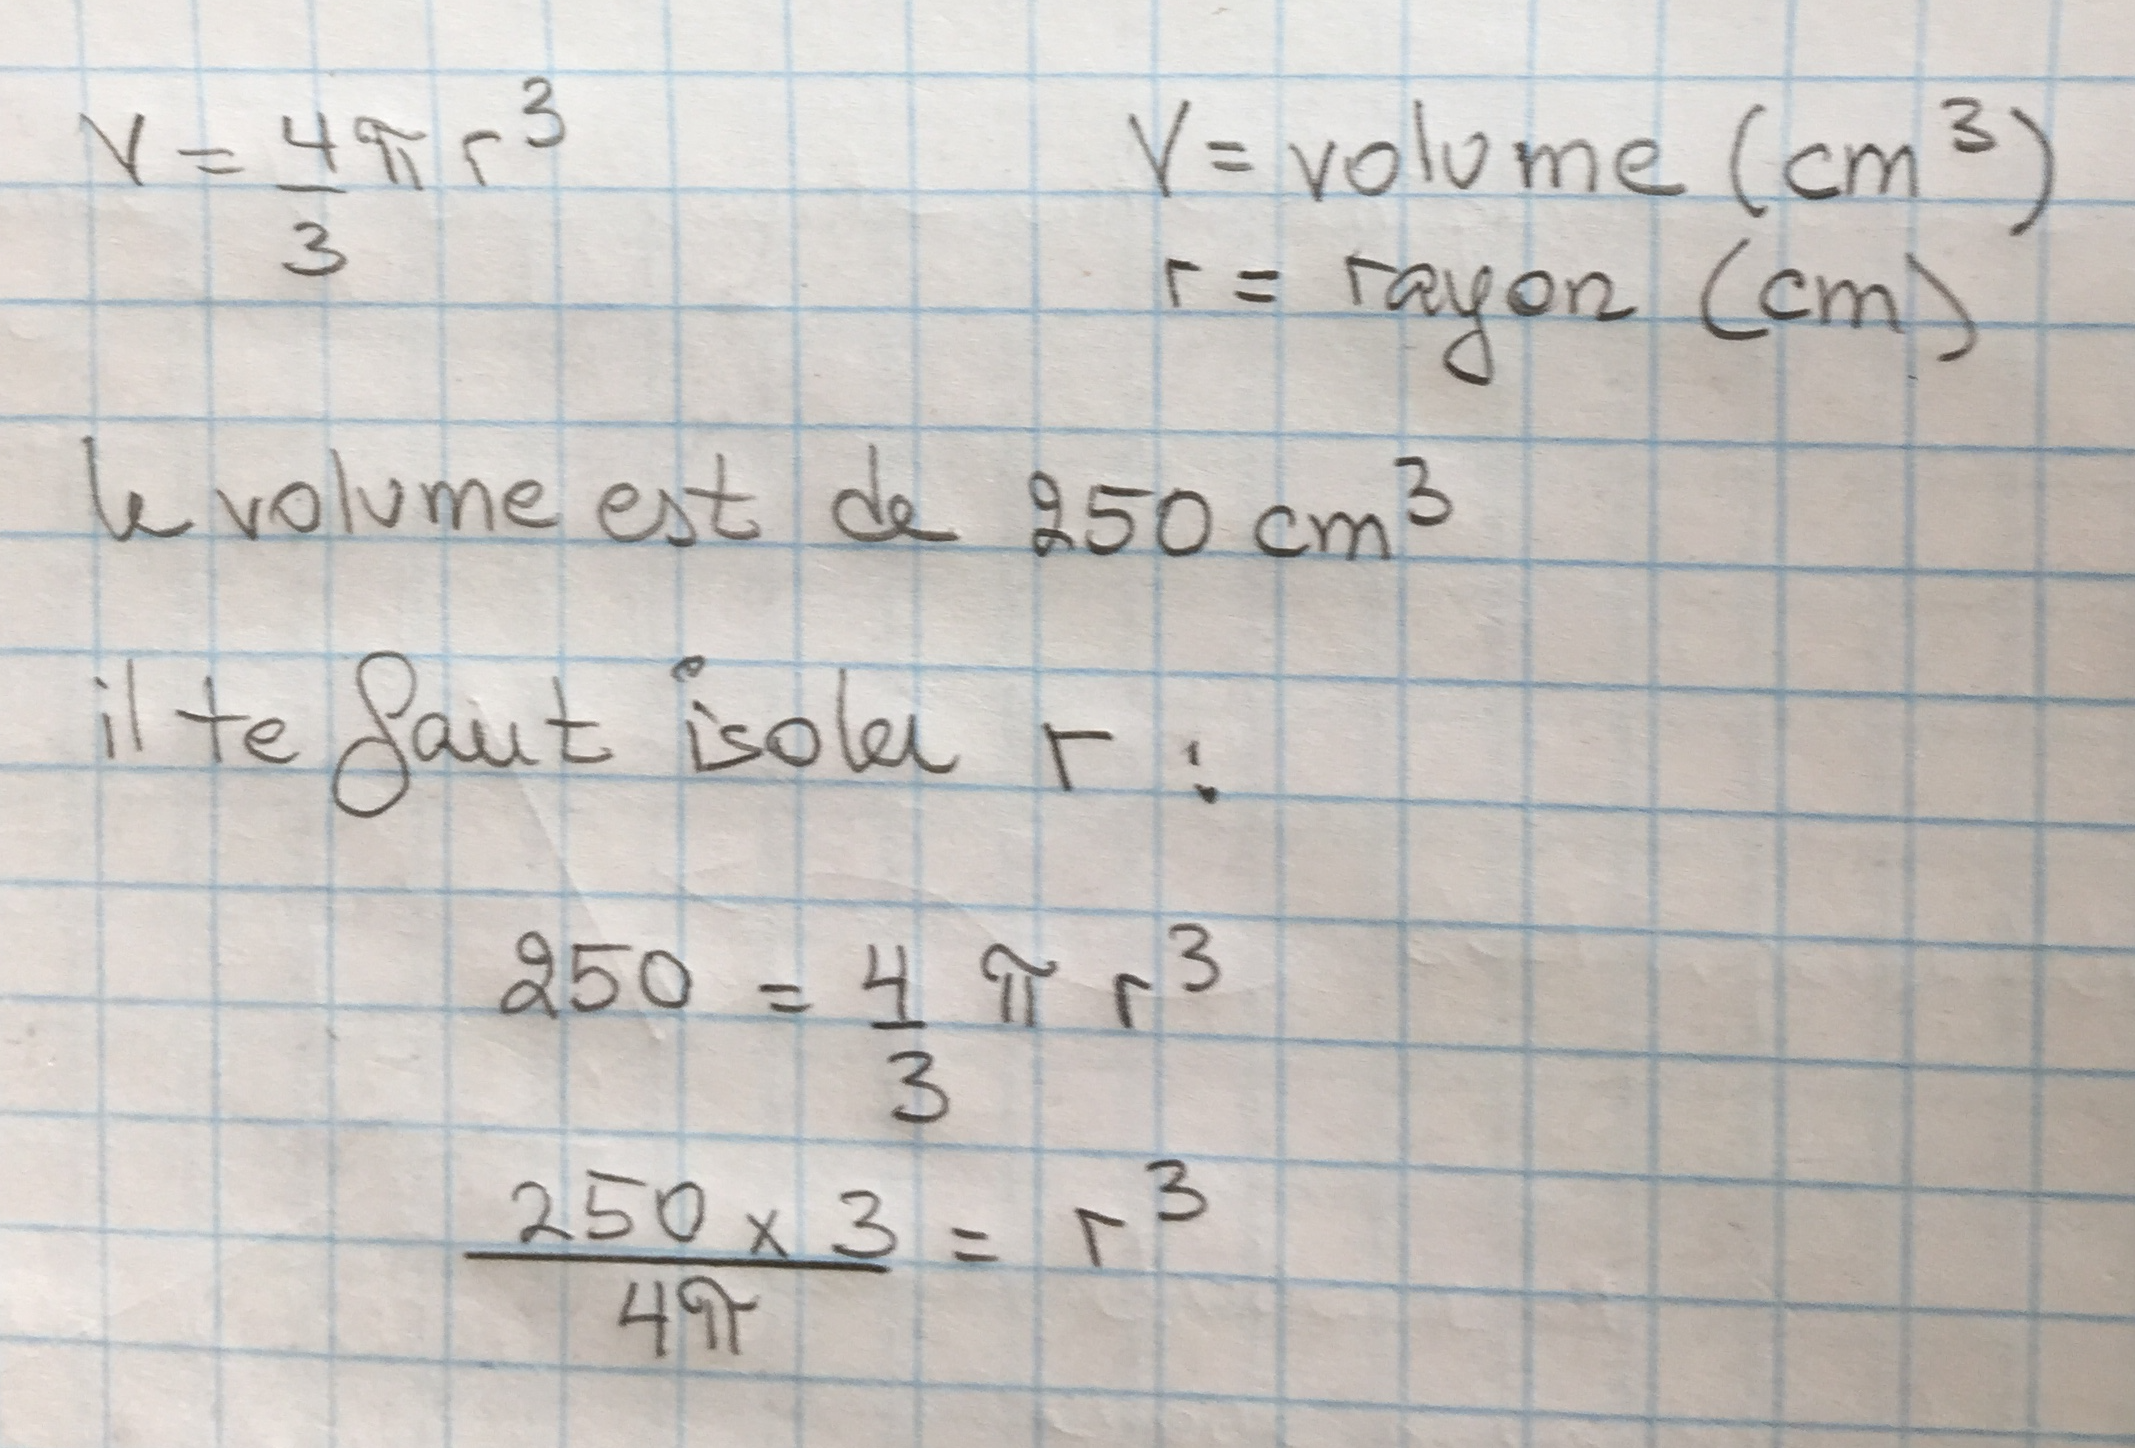 V = 4/3 π r³
V = volume (cm³)
r = rayon (cm)
le volume est de 250 cm³
il te faut isoler r :
250 = 4/3 π r³
250 x 3 / 4π = r³